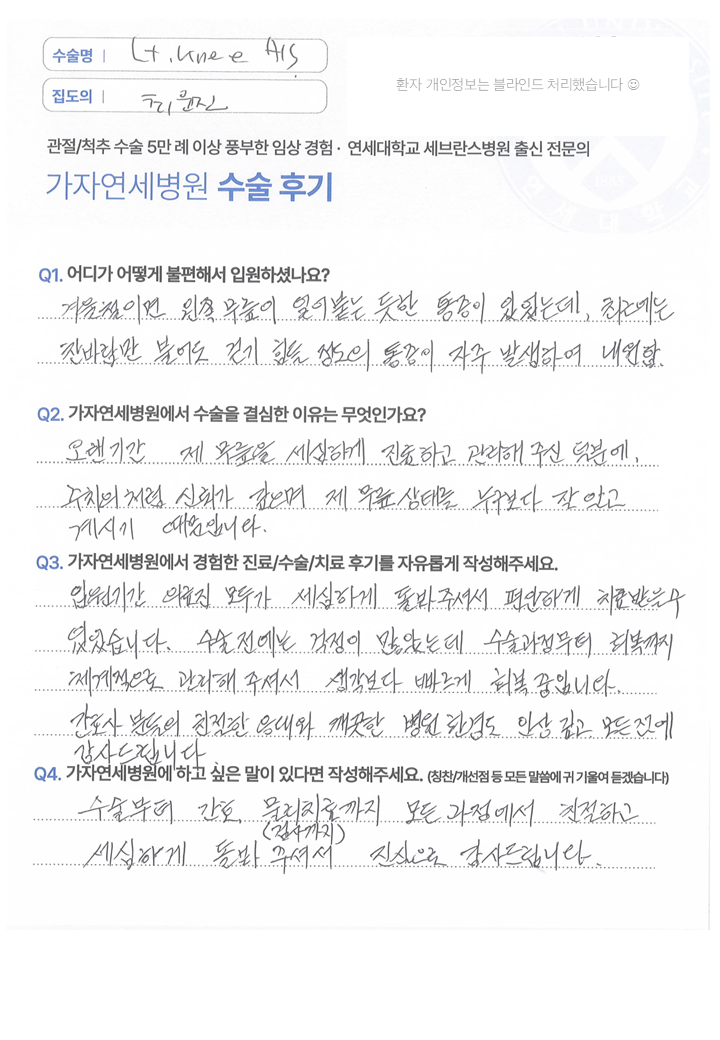 수술명 | Lt. knee A/S
환자 개인정보는 블라인드 처리했습니다 ☺
집도의 | 최윤진
관절/척추 수술 5만 례 이상 풍부한 임상 경험 · 연세대학교 세브란스병원 출신 전문의
가자연세병원 수술 후기
Q1. 어디가 어떻게 불편해서 입원하셨나요?
겨울철이면 왼쪽 무릎이 얼어붙는 듯한 통증이 있었는데, 최근에는
찬바람만 불어도 걷기 힘들 정도의 통증이 자주 발생하여 내원함.
Q2. 가자연세병원에서 수술을 결심한 이유는 무엇인가요?
오랜기간 제 무릎을 세심하게 진료하고 관리해 주신 덕분에,
주치의처럼 신뢰가 깊으며 제 무릎상태를 누구보다 잘 알고
계시기 때문입니다.
Q3. 가자연세병원에서 경험한 진료/수술/치료 후기를 자유롭게 작성해주세요.
입원기간 의료진 모두가 세심하게 돌봐주셔서 편안하게 치료받을수
있었습니다. 수술전에는 걱정이 많았는데 수술과정부터 회복까지
체계적으로 관리해 주셔서 생각보다 빠르게 회복중입니다.
간호사 분들의 친절한 응대와 깨끗한 병원 환경도 인상 깊고, 모든 것에
감사드립니다.
Q4. 가자연세병원에 하고 싶은 말이 있다면 작성해주세요. (칭찬/개선점 등 모든 말씀에 귀 기울여 듣겠습니다)
수술부터 간호, 물리치료까지 모든 과정에서 친절하고
(검사까지)
세심하게 돌봐 주셔서 진심으로 감사드립니다.